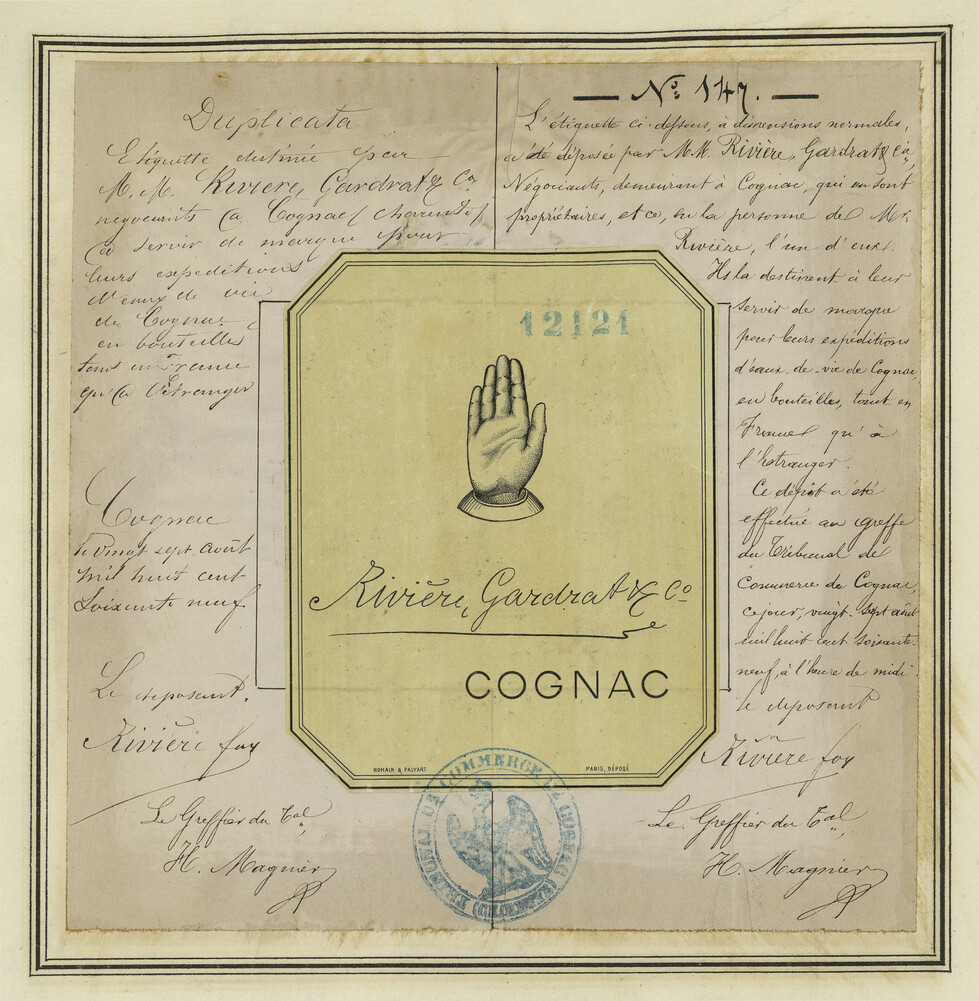 Duplicata
Etiquette destinée par
M. M. Riviere, Gardrat & Co
négociants à Cognac (charente)
à servir de marque pour
leurs expeditions
d'eaux de vie
de Cognac
en bouteilles
tant en France
qu'à l'étranger
Cognac
le vingt sept août
mil huit cent
soixante neuf
Le deposant.
Rivière
Le Greffier du Tal
H. Magnier
No. 147.
L'étiquette ci-dessous, à dimensions normales,
a été déposée par M.M. Rivière, Gardrat & Co,
Négociants, demeurant à Cognac, qui en sont
propriétaires, et ce, en la personne de Mr.
Rivière, l'un d'eux.
Ils la destinent à leur
servir de marque
pour leurs expéditions
d'eaux-de-vie de Cognac,
en bouteilles, tant en
France qu'à
l'Estranger.
Ce dépôt a été
effectué au greffe
du Tribunal de
Commerce de Cognac,
ce jour, vingt-sept août
mil huit cent soixante-
neuf, à l'heure de midi
le deposant
Rivière
Le Greffier du Tal
H. Magnier
12121
Rivière, Gardrat & Co
COGNAC
ROMAIN & PALYART
PARIS, DÉPOSÉ
TRIBUNAL DE COMMERCE DE COGNAC